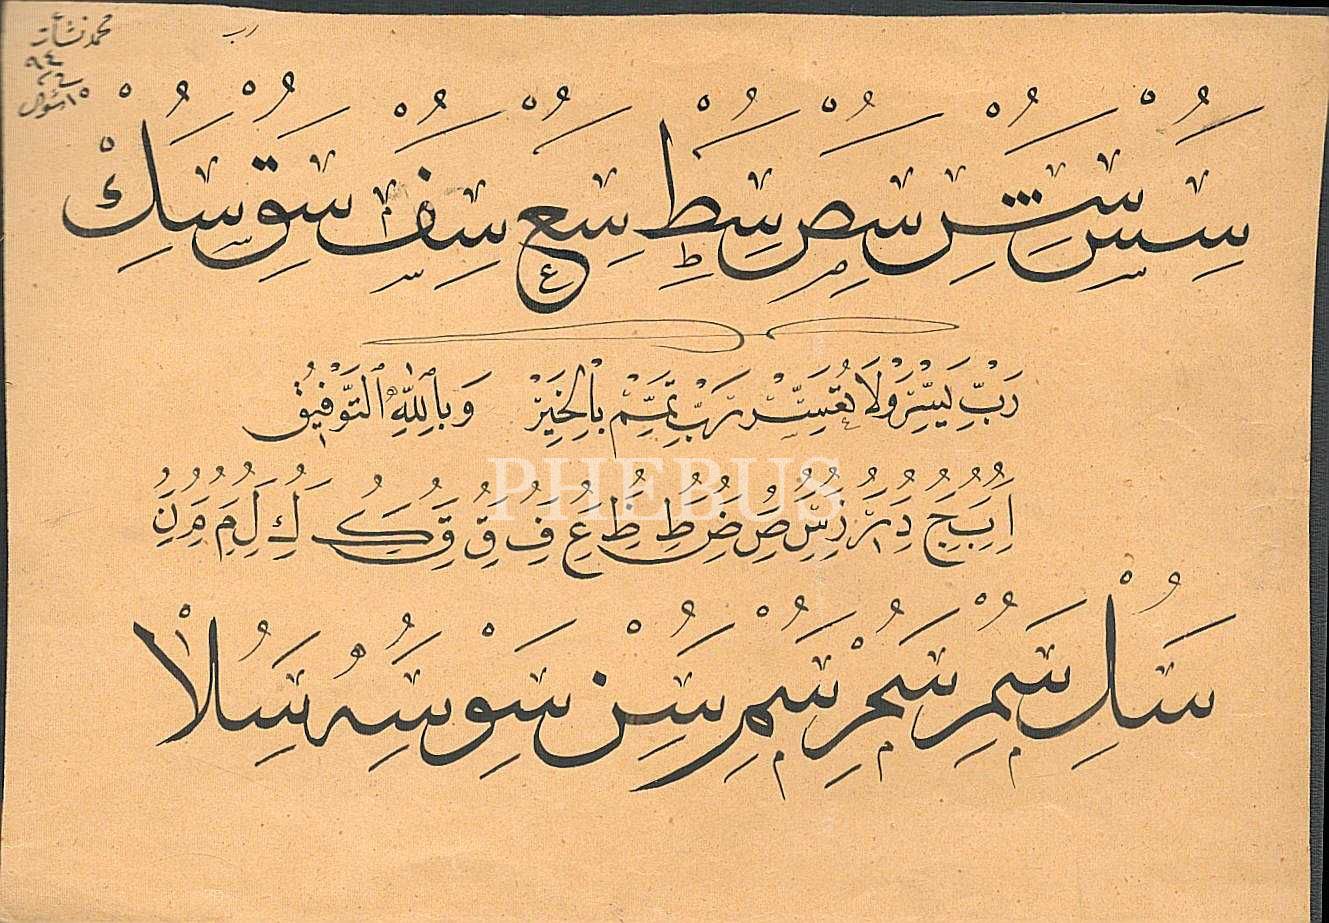 محمد نشأت
٩٤
في
١٥ شوال
رب
سس ستر سص سط سع سف سو سق سك
رَبِّ يَسِّرْ وَلَا تُعَسِّرْ رَبِّ تَمِّمْ بِالْخَيْرْ وَبِاللّٰهِ التَّوْفِيقُ
PHEBUS
ا ب ج د ر ز س ص ض ط ظ ع ف ق ك ل م ن
سل سم سم سم سن سو سه سلا